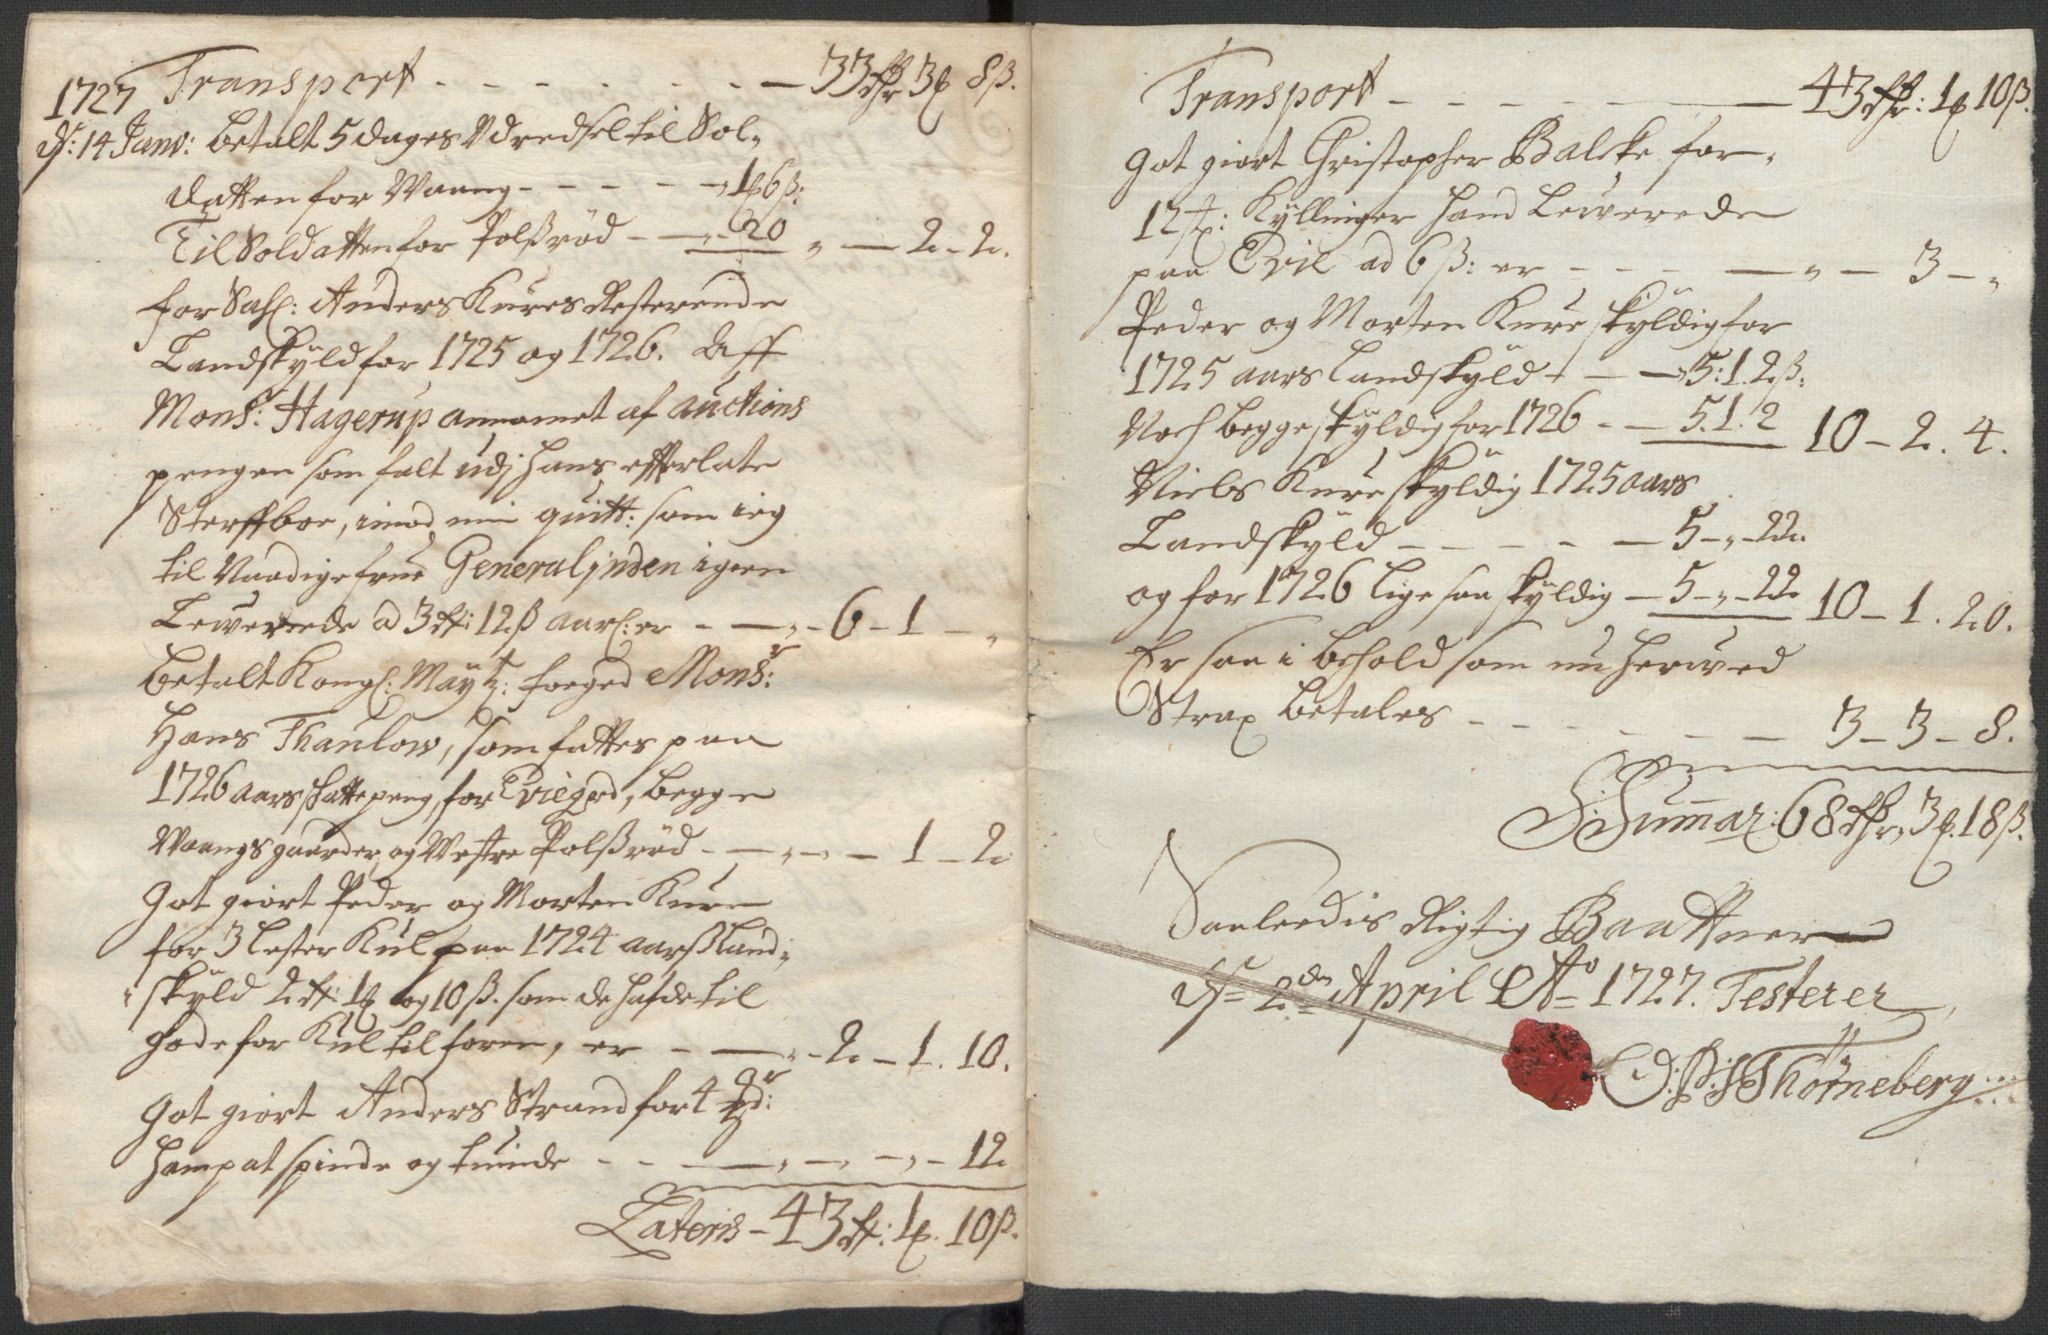 1727 Transport - - - - - - - 33 dhr 3 ɱ 8 ß.
d: 14 Janv: betalt 5 dages Udredsel til Sol-
datten for Waang - - - - - 1 ɱ 6 ß:
Til Soldatten for Polßrød - - 20 „ - 2 - 2.
for Sahl: Anders Kures Resterende
Landskÿld for 1725 og 1726. Aff
Mons: Hagerup annamet af auctions
pengen som falt udj hans efterlate
Sterffboe, imod min quitt: som ieg
til Naadige frue Generalinden igien
Lewerede a 3 dr: 12 ß aarl: er - - „ - 6 - 1 - „
betalt Kongl: Maÿtz: foeged Monsr:
Hans Thaulow, som fattes paa
1726 aars schattepeng, for Eviegrd, begge
Waangs gaarder, og Westre Polßrød - - „ - 1 - 2
Got giort Peder og Morten Kure
for 3 Lester Kul paa 1724 aarß Land-
skÿld 2 dr: 1 ɱ og 10 ß. som de hafde til
gode for Kul tilforn, er - - „ - 2 - 1. 10.
Got giort Anders Strand for 4
Hamp at spinde og tuinde - - - „ - „ - 12
Lateris - 43 dr: 1 ɱ. 10 ß.
Transport - - - - - 43 dhr: 1 ɱ 10 ß.
Got giort Christopher Balcke for-
12 st: Kÿllinger hand Lewerede
paa Evie ad 6 ß: er - - - - „ - 3 - „
Peder og Morten Kure skÿldig for
1725 aars Landskÿld - - - 5: 1. 2 ß:
Noch begge skÿldig for 1726 - - 5. 1. 2 10 - 2. 4.
Niels Kure skÿldig 1725 aars
Landskÿld - - - - - 5 - „ - 22.
og for 1726 lige saa skÿldig - 5 - „ - 22 10 - 1. 20.
Er saa i behold som nu herwed
Strax betales - - - - - - 3 - 3 - 8.
S: Summar: 68 dhr. 3 ɱ. 18 ß.
Saaleedis Rigtig
d 2den April Ao 1727. Testerer
Thørneberg